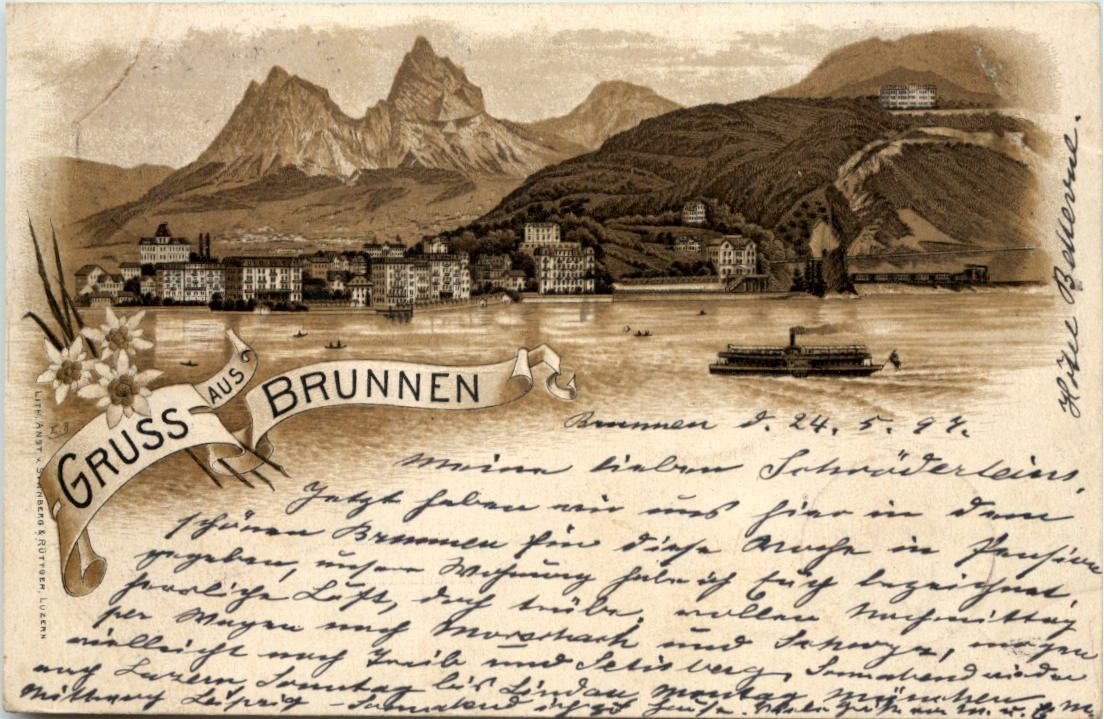 GRUSS AUS BRUNNEN
LITH. ANST. v. STERNBERG & RÜTTGER, LUZERN
Hôtel Bellevue.
Brunnen d. 24. 5. 97.
Meine lieben Schröderleins,
Jetzt haben wir uns hier in dem
schönen Brunnen für diese Woche in Pension
gegeben, unsere Wohnung habe ich Euch bezeichnet,
herrliche Luft, doch trübe, wollen Nachmittag
per Wagen nach Morschach und Schwyz, morgen
vielleicht nach und Seelisberg, Sonnabend wieder
nach Luzern, Sonntag bis Lindau, Montag München
Mittwoch Leipzig Sonnabend Hause. Viele Grüße